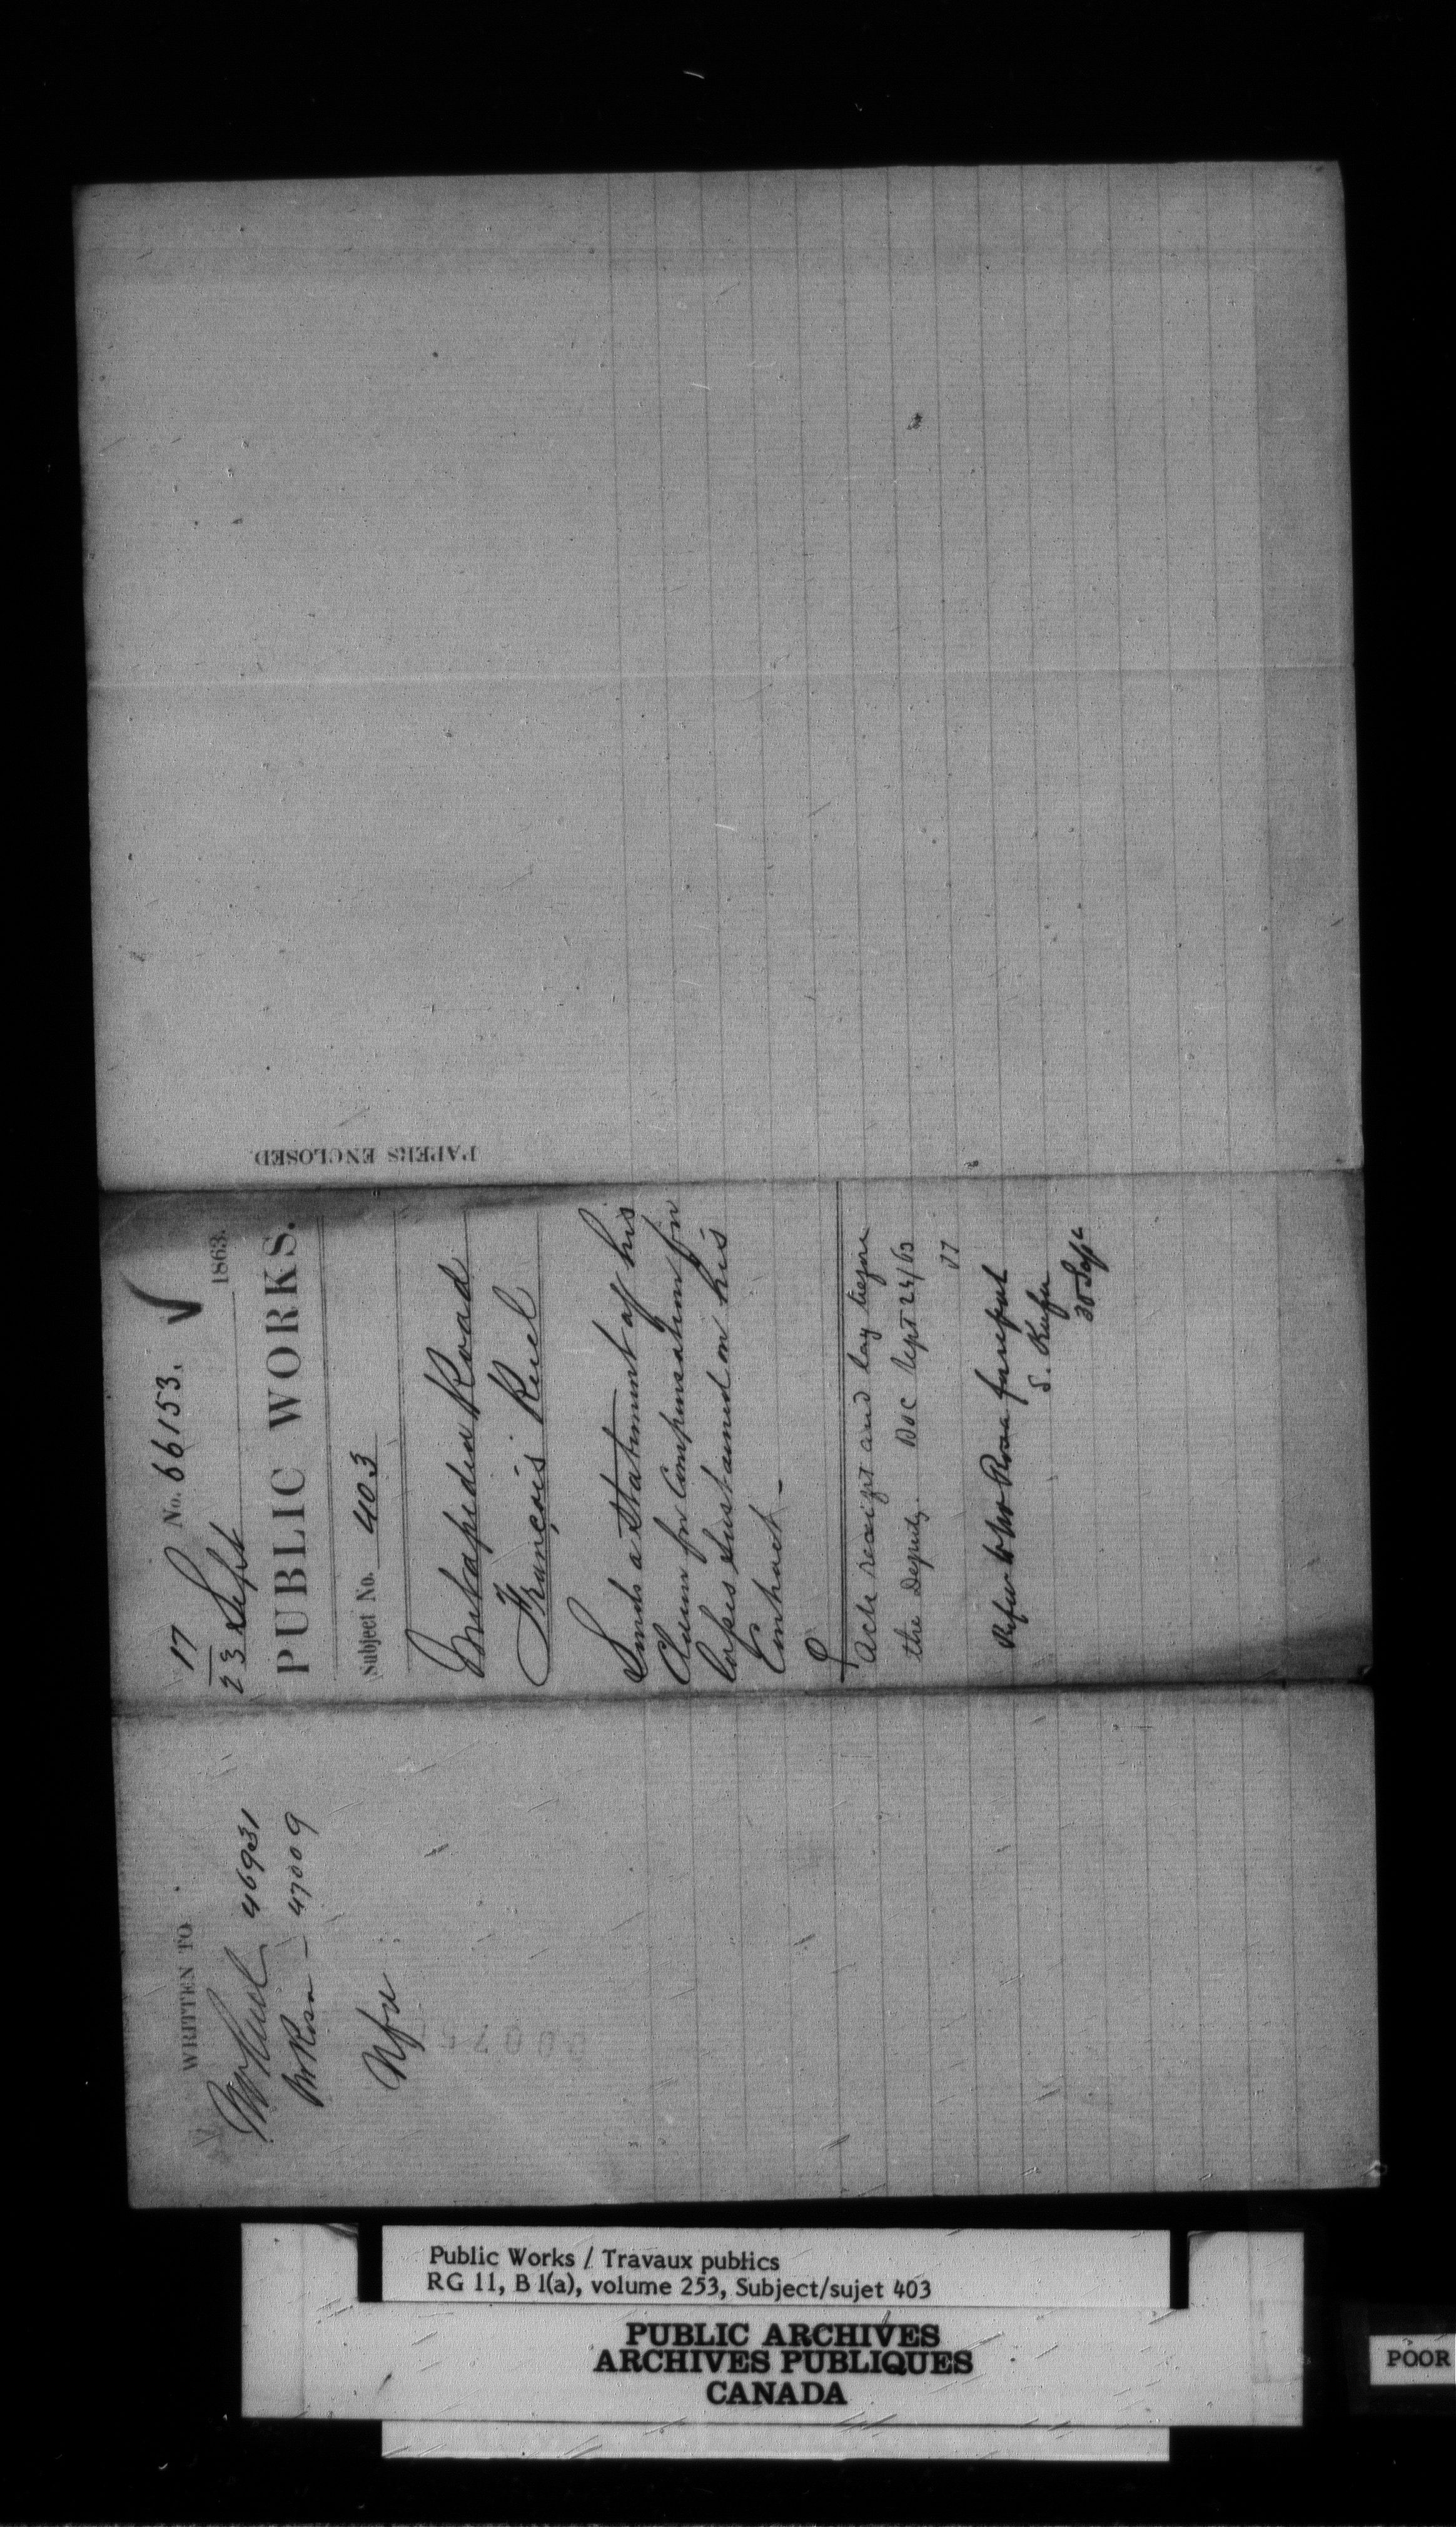 17
23 Sept
No. 66153.
1863.
PUBLIC WORKS.
Subject No. 403
Metapedia Road
François Ruel
Sends a Statement of his
Claim for Compensation for
losses sustained on his
Contract –
Ack receipt and lay before
the Deputy. Sept 24/63
Refer to Mr Rosa for report
30 Sept
PAPERS ENCLOSED
WRITTEN TO
Mr Ruel 46931
Mr Rosa – 47009
Public Works / Travaux publics
RG 11, B 1(a), volume 253, Subject/sujet 403
PUBLIC ARCHIVES
ARCHIVES PUBLIQUES
CANADA
POOR